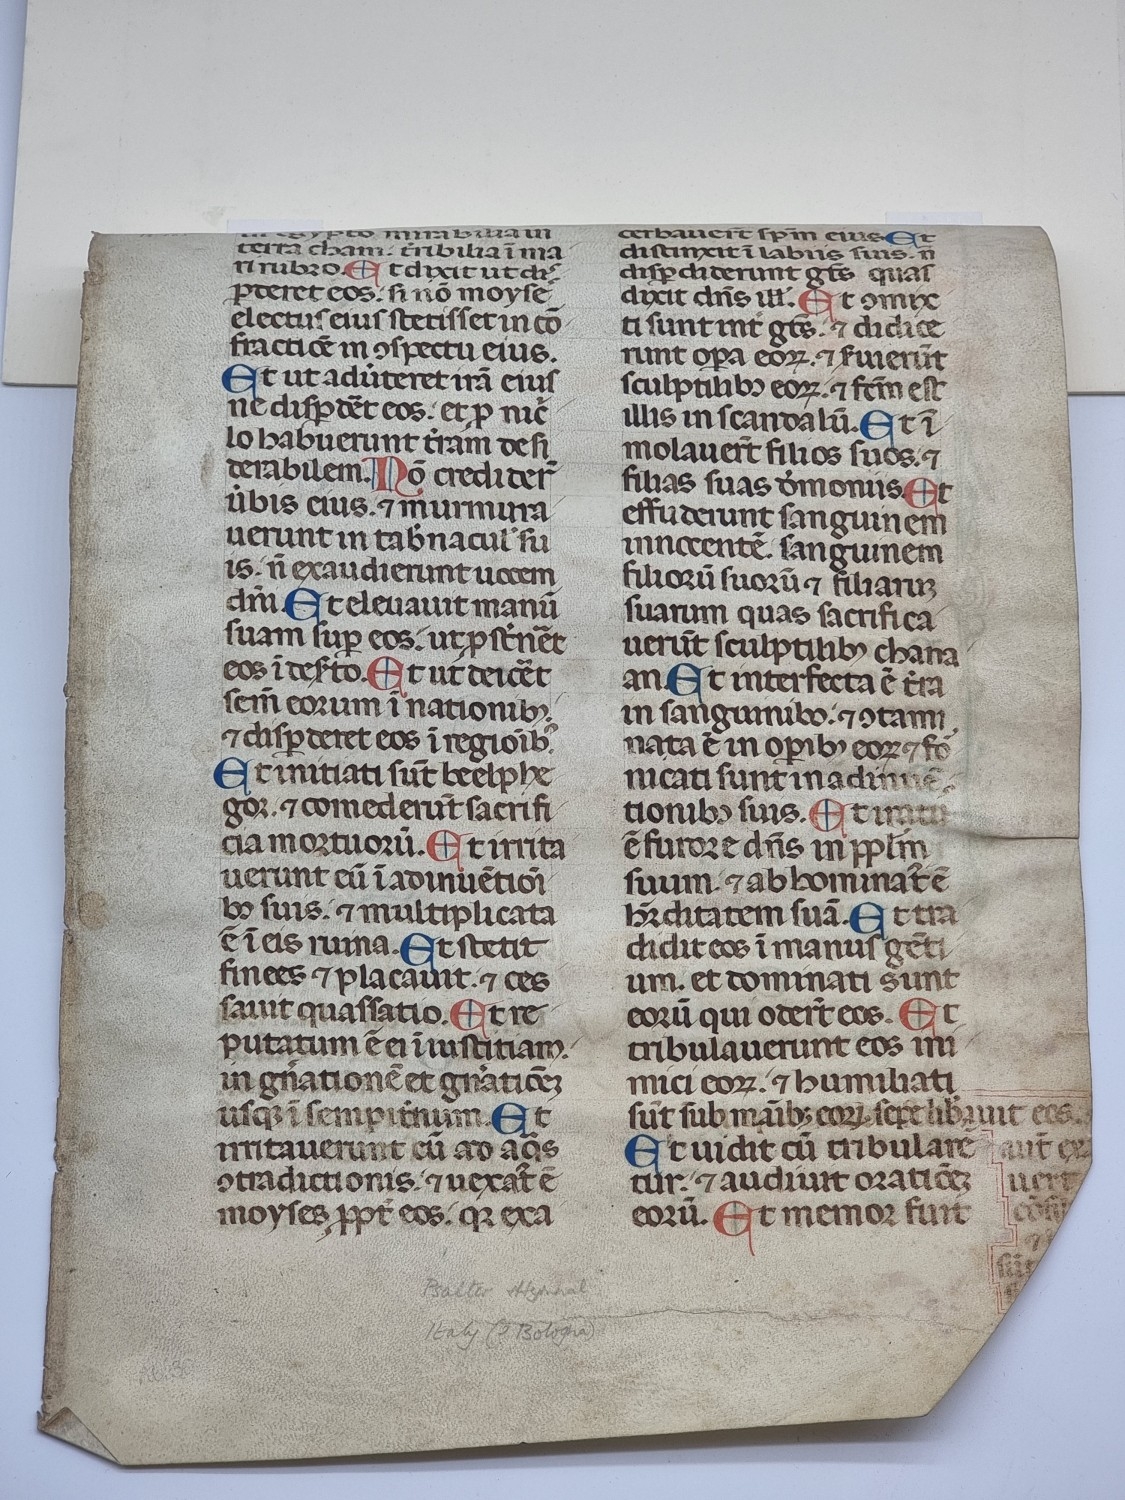 in egypto. mirabilia in
terra cham. t̄ribilia ī ma
ri rubro. Et dixit ut dis
ꝑderet eos. si nō moyse
electus eius stetisset in cō
fractiōe in ꝯspectu eius.
Et ut aűteret irā eius
ne disꝑdēt eos. et ꝓ nic̄
lo habuerunt t̄ram desi
derabilem. Nō credider̄
űbis eius. ⁊ murmura
uerunt in tab̄nacul' su
is. n̄ exaudierunt uocem
dm̄i. Et eleuauit manū
suam suꝑ eos. ut ꝓst̄nēt
eos ī des̄to. Et ut deicēt
sem̄ eorum ī nationibꝫ.
⁊ disꝑderet eos ī regioībꝫ.
Et initiati sūt beelphe
gor. ⁊ comederūt sacrifi
cia mortuorū. Et irrita
uerunt eū ī adinuētioī
bꝫ suis. ⁊ multiplicata
ē ī eis ruina. Et stetit
finees ⁊ placauit. ⁊ ces
sauit quassatio. Et re
putatum ē ei ī iustitiam.
in gn̄ationē et gn̄atiōeꝫ
usqꝫ ī sempit̄num. Et
irritauerunt eū ad aq̄s
ꝯtradictionis. ⁊ uexat̄ ē
moyses ꝓpt̄ eos. qꝛ exa
cerbauer̄t sp̄m eius. Et
distinxit ī labiis suis. n̄
disꝑdiderunt gt̄es quas
dixit dn̄s ill'. Et ꝯmix
ti sunt int̄ gt̄es. ⁊ didice
runt oꝑa eoꝝ. ⁊ s̄uierūt
sculptilibꝫ eoꝝ. ⁊ fcm̄ est
illis in scandalū. Et ī
molauer̄t filios suos. ⁊
filias suas d̄moniis. Et
effuderunt sanguinem
innocentē. sanguinem
filiorū suorū ⁊ filiarum
suarum quas sacrifica
uerūt sculptilibꝫ chana
an. Et interfecta ē t̄ra
in sanguinibꝫ. ⁊ ꝯtami
nata ē in oꝑibꝫ eoꝝ ⁊ fō
nicati sunt in adinuē
tionibꝫ suis. Et iratu
ē furore dn̄s in pplm̄
suum. ⁊ abhominat̄ ē
hr̄ditatem suā. Et tra
didit eos ī manus gēti
um. et dominati sunt
eorū qui oder̄t eos. Et
tribulauerunt eos ini
mici eoꝝ. ⁊ humiliati
sūt sub manibꝫ eoꝝ. sepe lib̄auit eos.
Et uidit cū tribularē
tur. ⁊ audiuit oratiōeꝫ
eorū. Et memor fuit
Psalter Hymnal
Italy (? Bologna)